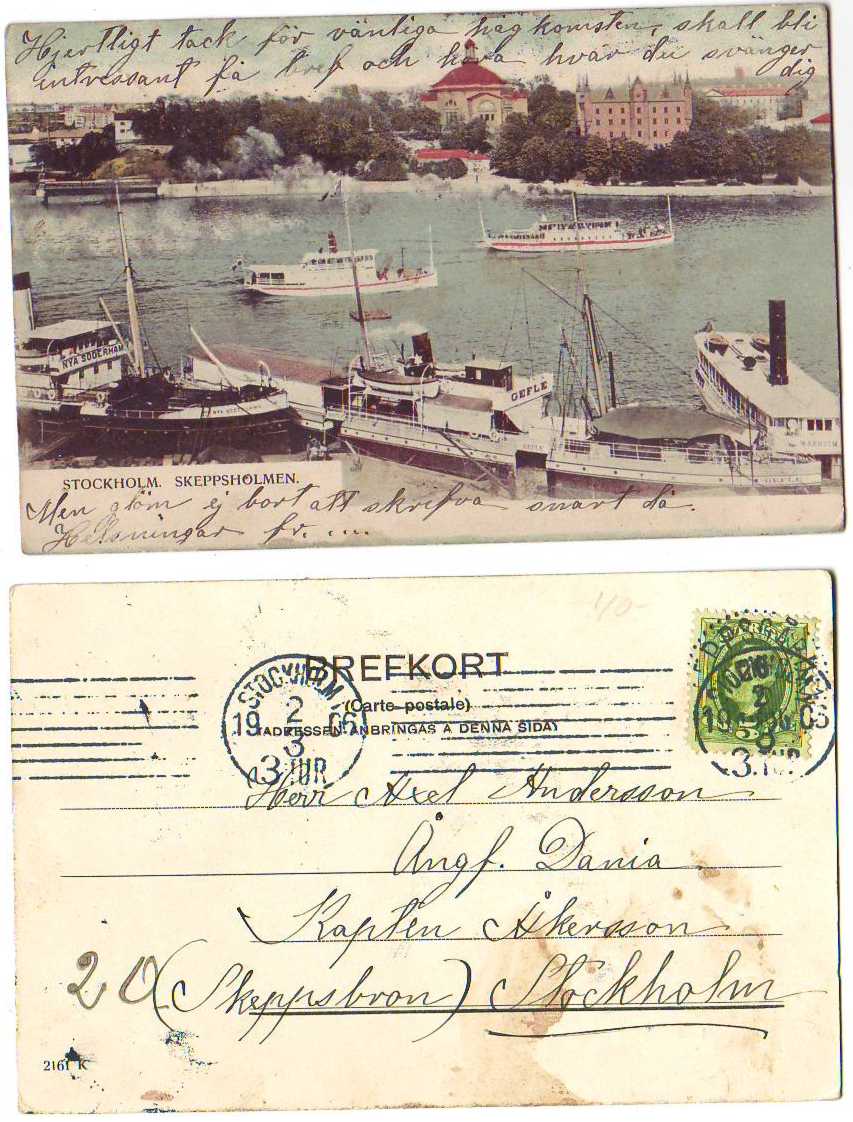 Hjertligt tack för vänliga håg komsten, skall bli
intressant få bref och höra hvar du svänger
dig
NYA SÖDERHAM
GEFLE
STOCKHOLM. SKEPPSHOLMEN.
Men glöm ej bort att skrifva snart då.
Helsningar fr. ....
40-
BREFKORT
(Carte postale)
(ADRESSEN ANBRINGAS Å DENNA SIDA)
STOCKHOLM
2
19 06
3
3.TUR
2
19 06
3
3.TUR
Herr Axel Andersson
Ångf. Dania
Kapten Åkersson
(Skeppsbron) Stockholm
20
2161 K